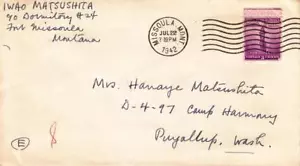 IWAO MATSUSHITA
90 Dormitory #24
Fort Missoula
Montana
MISSOULA, MONT.
JUL 22
7:30 PM
1942
Mrs. Hanaye Matsushita
D-4-97 Camp Harmony
Puyallup, Wash.
E
8